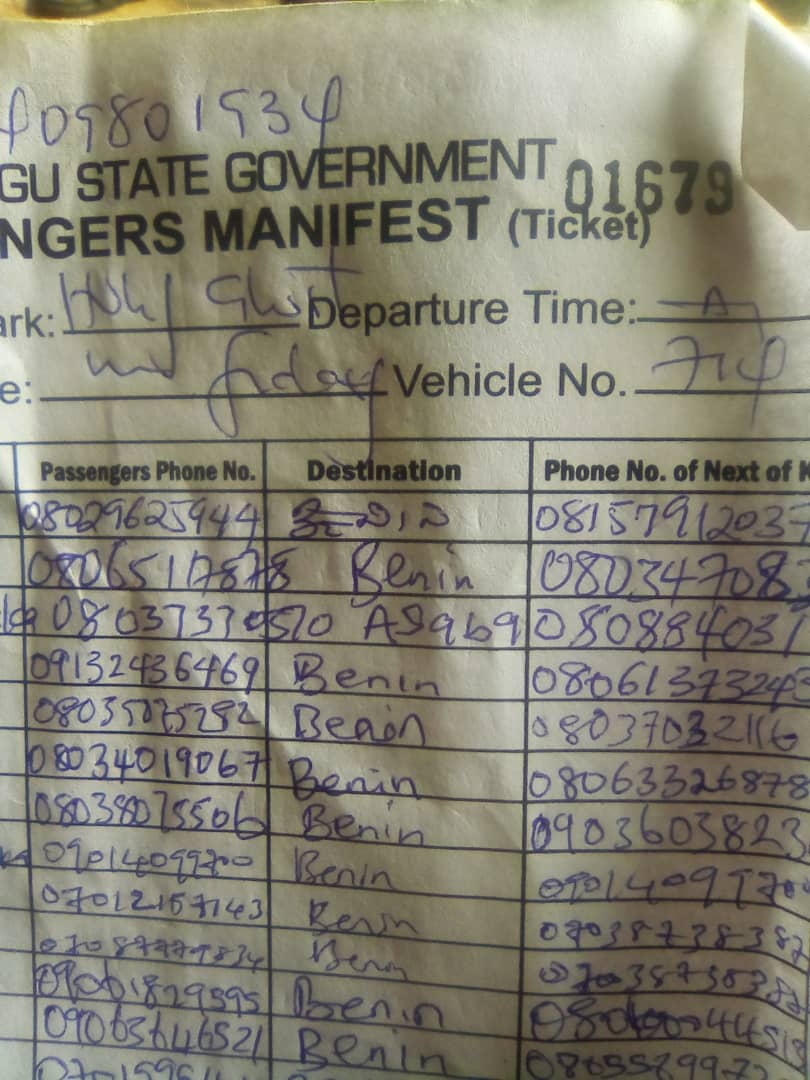 09801934
GU STATE GOVERNMENT 01679
NGERS MANIFEST (Ticket)
ark: Holy Ghost Departure Time:
e: friday Vehicle No. 714
Passengers Phone No. Destination Phone No. of Next of K
08029625944 08157912037
08065117878 Benin 080347083
08037370570 Asaba 080884037
09132436469 Benin 0806137324
08035075292 Benin 08037032116
08034019067 Benin 08063326878
08038075506 Benin 0903603823
09014099700 Benin 090140997
07012157143 Benin 0703873838
07087779834 Benin 0703873838
09061829595 Benin
09063646521 Benin